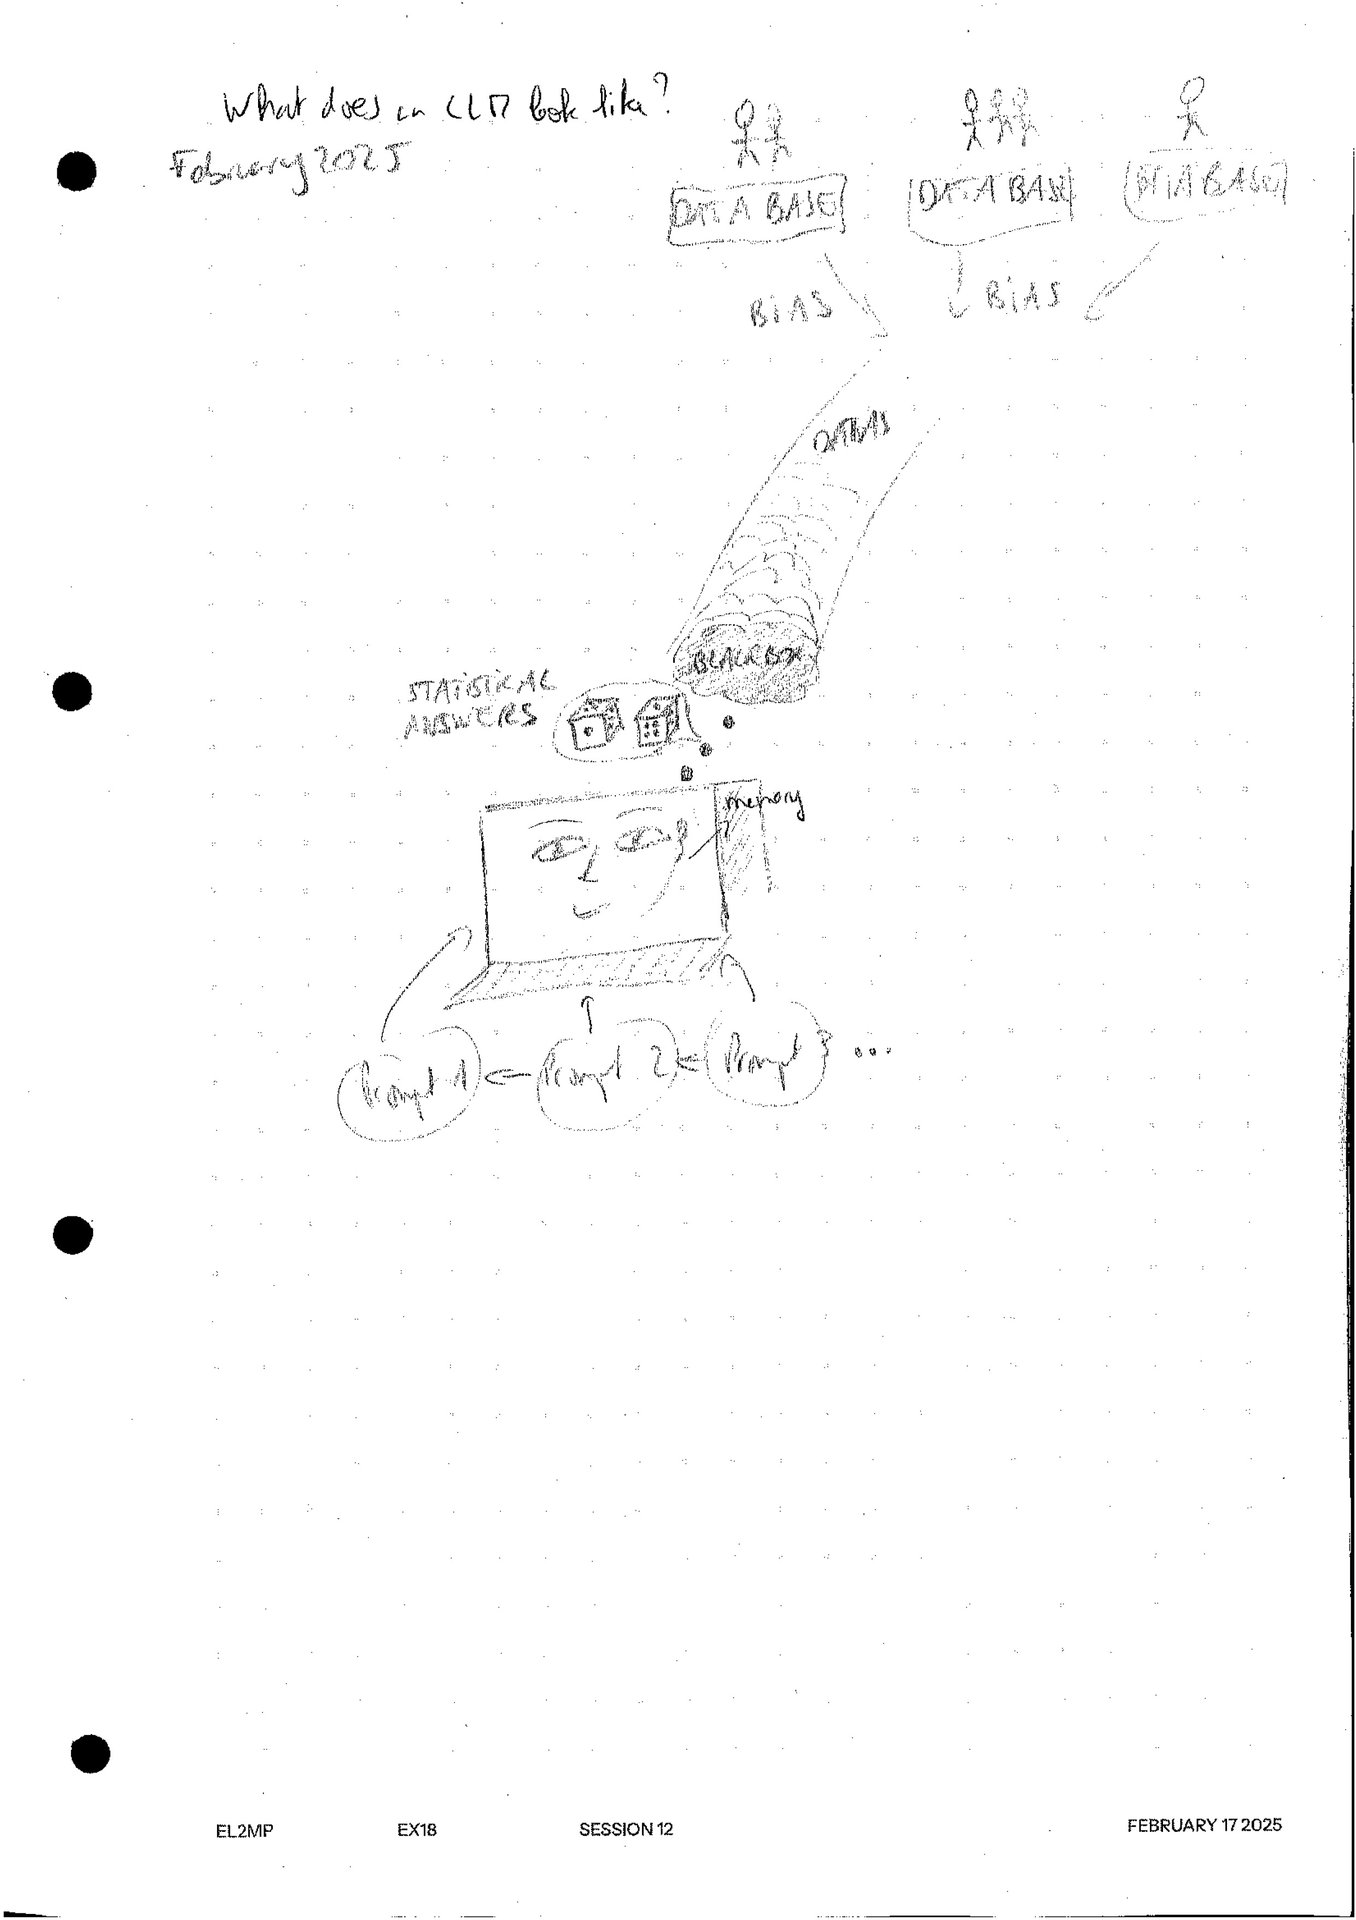 What does an LLM look like?
February 2025
DATA BASE
DATA BASE
DATA BASE
BIAS
BIAS
BLACK BOX
STATISTICAL
ANSWERS
memory
Prompt 1
Prompt 2
Prompt 3 ...
EL2MP EX18 SESSION 12 FEBRUARY 17 2025